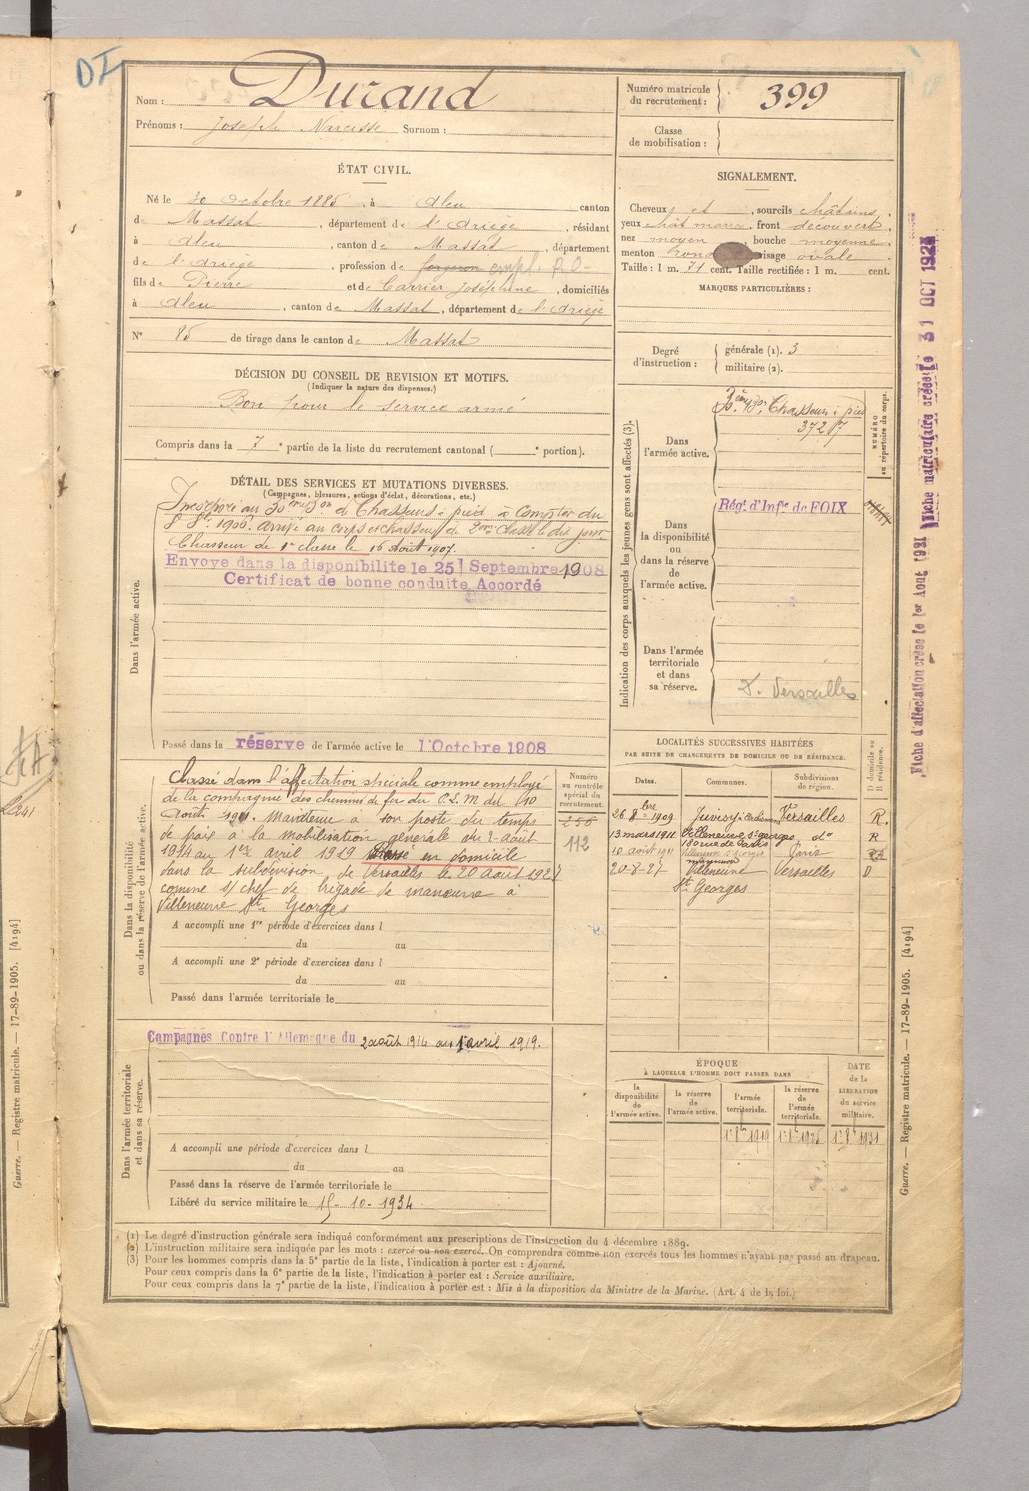 DI
Nom : Durand
Prénoms : Joseph Narcisse Surnom :
Numéro matricule du recrutement : 399
Classe de mobilisation :
ÉTAT CIVIL.
Né le 30 Octobre 1885, à Aleu canton
de Massat, département de l'Ariège, résidant
à Aleu, canton de Massat, département
de l'Ariège, profession de forgeron empl. P.O-
fils de Pierre et de Carrier Joséphine, domiciliés
à Aleu, canton de Massat, département de l'Ariège
N° 85 de tirage dans le canton de Massat
DÉCISION DU CONSEIL DE REVISION ET MOTIFS.
(Indiquer la nature des dispenses.)
Bon pour le service armé
Compris dans la 7e partie de la liste du recrutement cantonal ( e portion).
SIGNALEMENT.
Cheveux et, sourcils châtains,
yeux chât marr, front découvert,
nez moyen, bouche moyenne,
menton rond visage ovale
Taille : 1 m. 71 cent. Taille rectifiée : 1 m. cent.
MARQUES PARTICULIÈRES :
Degré d'instruction : générale (1). 3
militaire (2).
DÉTAIL DES SERVICES ET MUTATIONS DIVERSES.
(Campagnes, blessures, actions d'éclat, décorations, etc.)
Dans l'armée active.
Incorporé au 30ème Bon de Chasseurs à pied à compter du
8 8bre 1906. Arrivé au corps et chasseur de 2me classe le dit jour
Chasseur de 1e classe le 16 Août 1907.
Envoyé dans la disponibilité le 25 Septembre 1908
Certificat de bonne conduite Accordé
Passé dans la réserve de l'armée active le 1 Octobre 1908
Indication des corps auxquels les jeunes gens sont affectés (3).
NUMÉRO au répertoire du corps.
Dans l'armée active.
Chasseurs à pied
3727
Dans la disponibilité ou dans la réserve de l'armée active.
Régt d'Infie de FOIX
Dans l'armée territoriale et dans sa réserve.
Versailles
Dans la disponibilité ou dans la réserve de l'armée active.
Classé dans l'affectation spéciale comme employé
de la compagnie des chemins de fer du P.L.M. du 10
Août 1911. Maintenu à son poste du temps
de paix à la mobilisation générale du 2 août
1914 au 1er avril 1919 en domicile
dans la subdivision de Versailles le 20 août 1927
comme s/ chef de brigade de manœuvre à
Villeneuve St Georges
A accompli une 1re période d'exercices dans l
du au
A accompli une 2e période d'exercices dans l
du au
Passé dans l'armée territoriale le
Numéro au contrôle spécial du recrutement.
112
LOCALITÉS SUCCESSIVES HABITÉES
PAR SUITE DE CHANGEMENTS DE DOMICILE OU DE RÉSIDENCE.
Dates. Communes. Subdivisions de région. D domicile ou R résidence.
26 8bre 1909 Juvisy Versailles R.
13 mars 1911 Villeneuve St georges do R
10 août 1911 Paris
20-8-27 Villeneuve St Georges Versailles D
Dans l'armée territoriale et dans sa réserve.
Campagnes Contre l'Allemagne du 2 août 1914 au 1 avril 1919.
A accompli une période d'exercices dans l
du au
Passé dans la réserve de l'armée territoriale le
Libéré du service militaire le 15-10-1934.
ÉPOQUE
À LAQUELLE L'HOMME DOIT PASSER DANS
la disponibilité de l'armée active. la réserve de l'armée active. l'armée territoriale. la réserve de l'armée territoriale.
DATE de la LIBÉRATION du service militaire.
(1) Le degré d'instruction générale sera indiqué conformément aux prescriptions de l'instruction du 4 décembre 1889.
(2) L'instruction militaire sera indiquée par les mots : exercé ou non exercé. On comprendra comme non exercés tous les hommes n'ayant pas passé au drapeau.
(3) Pour les hommes compris dans la 5e partie de la liste, l'indication à porter est : Ajourné.
Pour ceux compris dans la 6e partie de la liste, l'indication à porter est : Service auxiliaire.
Pour ceux compris dans la 7e partie de la liste, l'indication à porter est : Mis à la disposition du Ministre de la Marine. (Art. 4 de la loi.)
Fiche d'affectation créée le 1er Aout 1931
Fiche matriculaire créée le 31 OCT 192
Guerre. — Registre matricule. — 17-89-1905. [4194]
Guerre. — Registre matricule. — 17-89-1905. [4194]